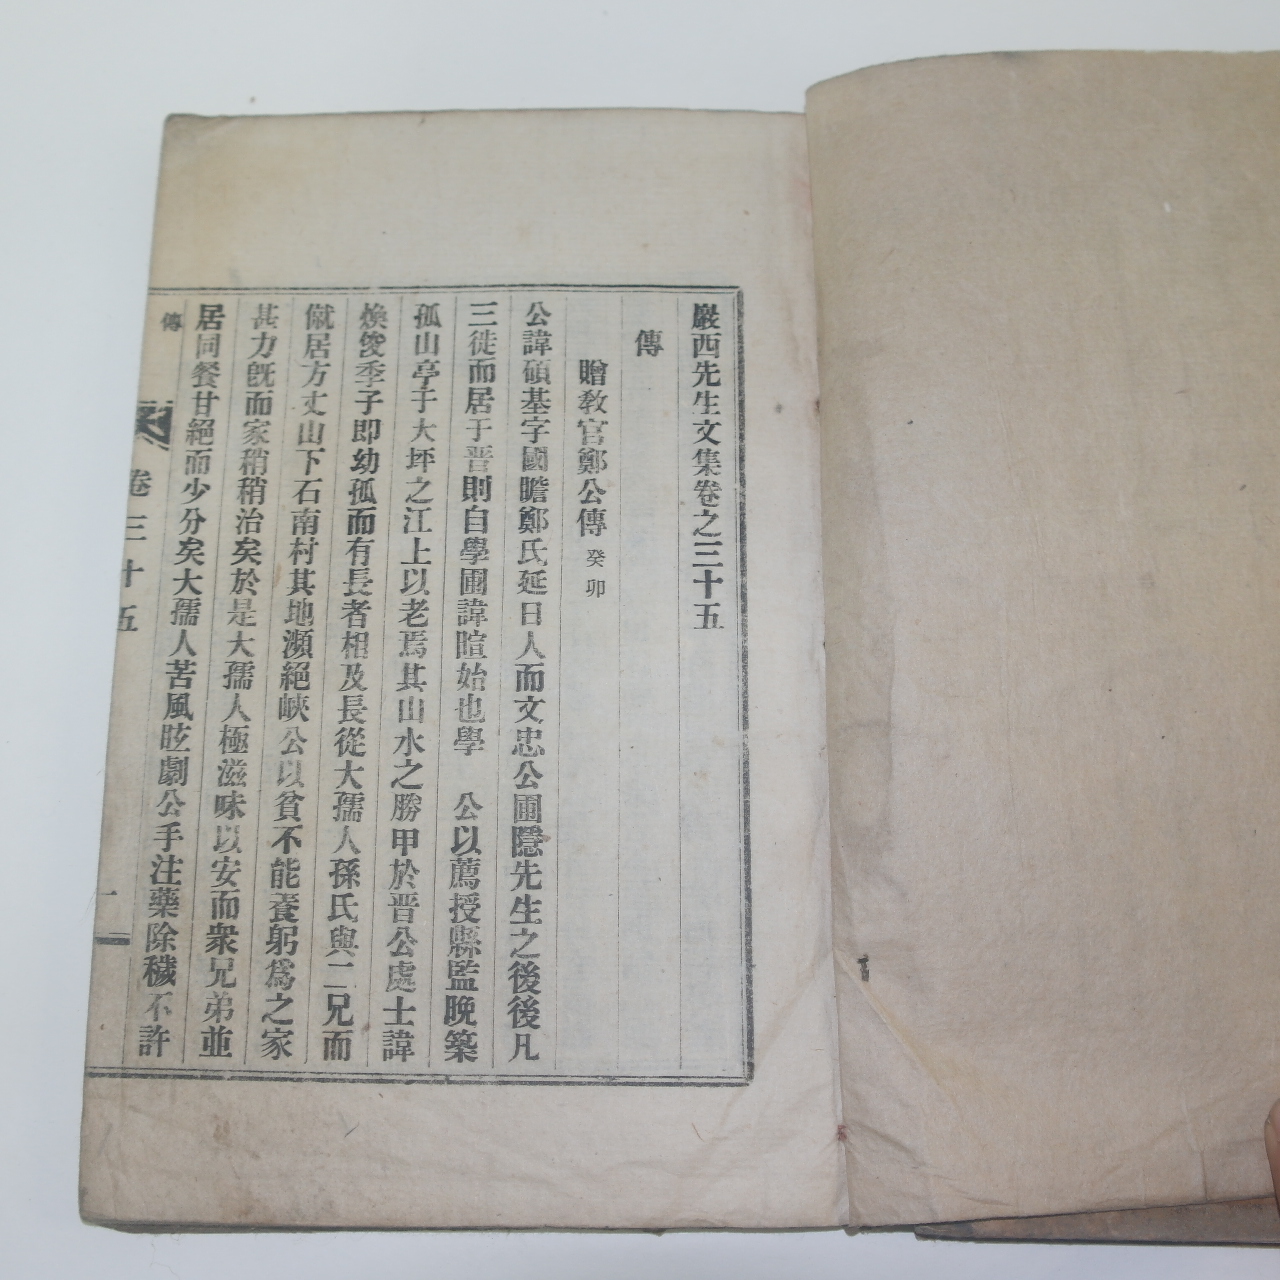 巖西先生文集卷之三十五
傳
贈教官鄭公傳 癸卯
公諱碩基字國瞻鄭氏延日人而文忠公圃隱先生之後後凡
三徙而居于晋則自學圃諱暄始也學 公以薦授縣監晚築
孤山亭于大坪之江上以老焉其山水之勝甲於晋公處士諱
煥夋季子即幼孤而有長者相及長從大孺人孫氏與二兄而
僦居方丈山下石南村其地瀕絕峽公以貧不能養躬爲之家
甚力旣而家稍稍治矣於是大孺人極滋味以安而衆兄弟並
居同餐甘絕而少分矣大孺人苦風眩劇公手注藥除穢不許
傳
卷三十五
一